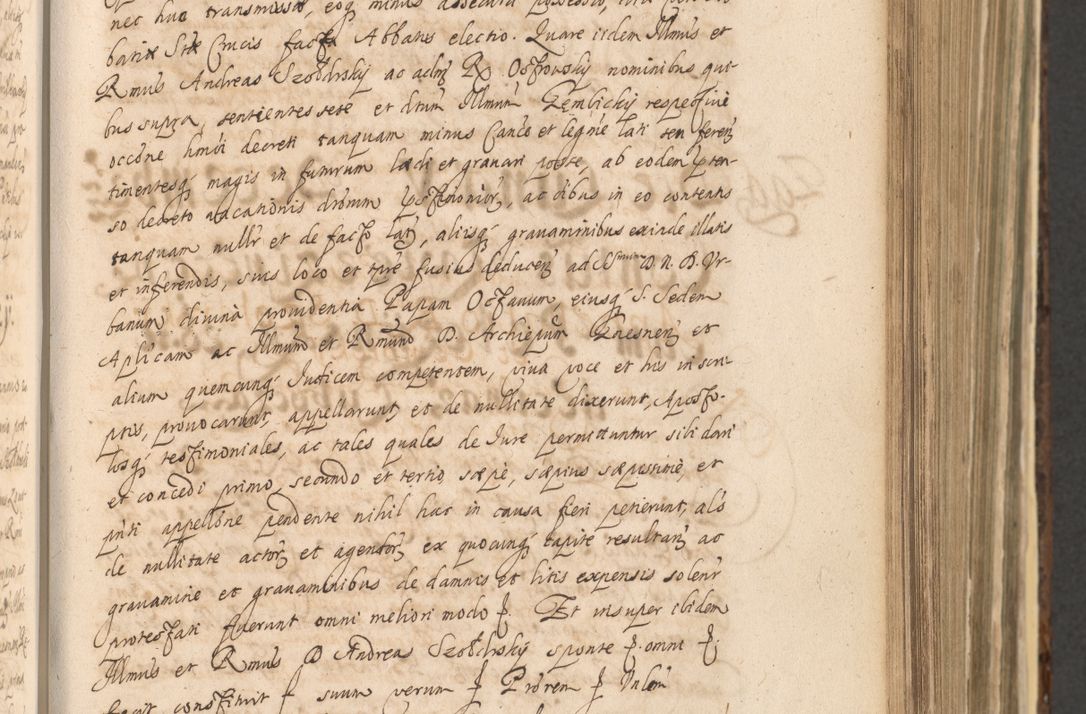 nec huc transmissa, eoq minus assecuta possessio,
batiæ Stæ Crucis facta Abbatis electio. Quare iidem Illmus et
Rmus Andreas Szołdrsky ac adm R. Ostrovsky nominibus qui-
bus supra, sentientes sese et dictum Illmum Gembicky respective
occone hmoi decreti tanquam minus Cance et legme lati seu feren
timentesq magis in futurum lædi et gravari posse, ab eodem præten-
so decreto vacationis dictorum Testimonior, ac oibus in eo contentis
tanquam nullr et de facto lat, aliisq gravaminibus exinde illatis
et inferendis, suis loco et tpre fusius deducen ad SSmum D. N. D. Ur-
banum divina providentia Papam Octavum, eiusq S. Sedem
Aplicam ac Illmum et Rmum D. Archiepum Gnesnen et
alium quemcunq Iudicem competentem, viva voce et his in scri-
ptis, provocarunt, appellarunt, et de nullitate dixerunt, Aposto-
losq testimoniales, ac tales quales de Iure permittuntur sibi dari
et concedi primo, secundo et tertio, sæpe, sæpius sæpissime, et
pnti appellone pendente nihil hac in causa fieri petierunt, als
de nullitate actor et agendor ex quocunq capite resultan ac
gravamine et gravaminibus de damnis et litis expensis solenr
protestati fuerunt omni meliori modo p. Et insuper ibidem
Illmus et Rmus D Andreas Szołdrsky sponte p. omni p.
fecit constituit p suum verum p Prorem p Valen